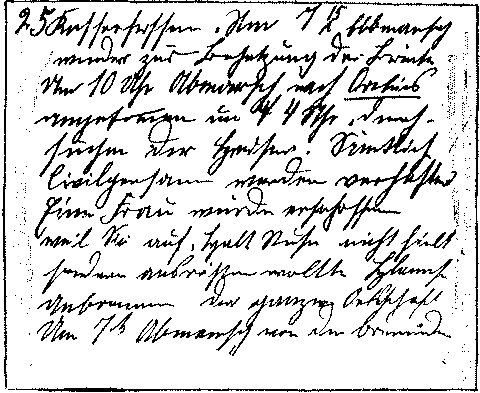 25 Kaffeefassen. Um 7 Uhr Abmarsch
wieder zur Besetzung der Brücke
Um 10 Uhr Abmarsch nach Orchies
angekommen um 4 Uhr. durch-
suchen der Häuser. Sämtlich
Civilpersonen werden verhaftet
Eine Frau wurde erschossen
weil Sie auf, Halt Rufen nicht hielt
sondern ausreissen wollte
Anbrennen der ganzen Ortschaft
Um 7 h Abmarsch von der